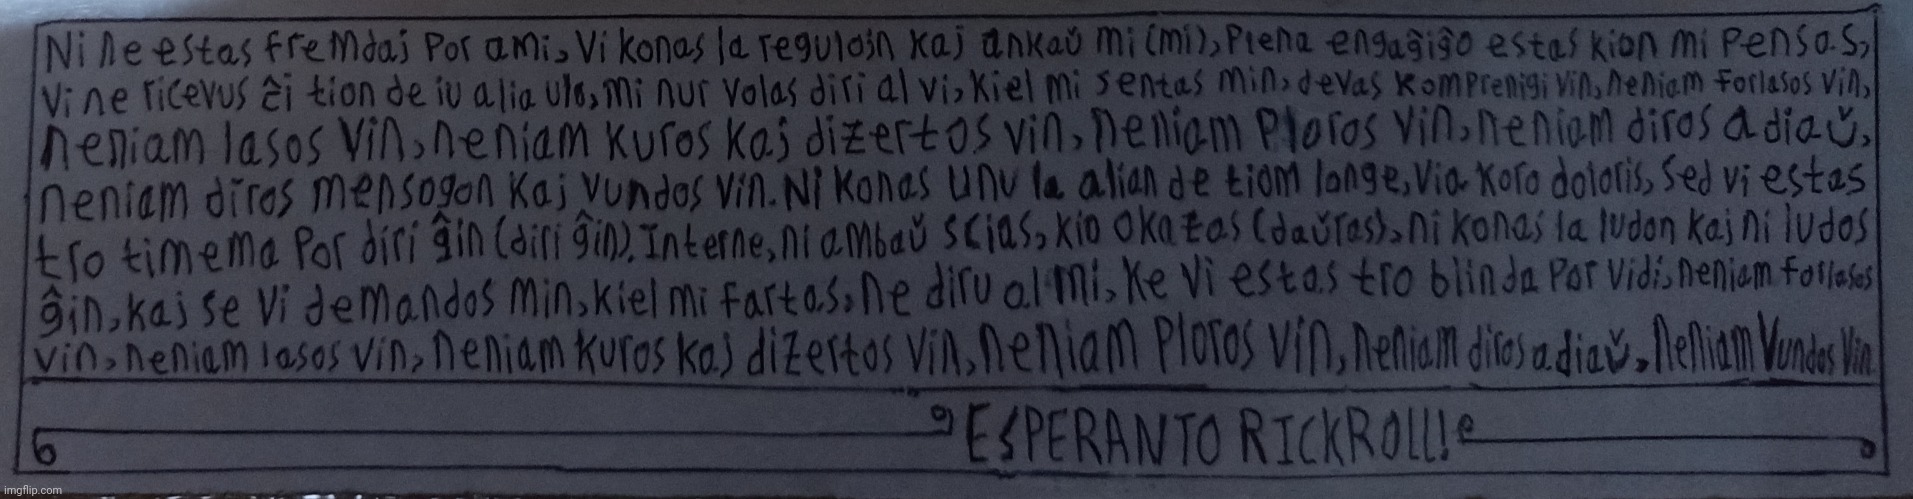 Ni ne estas fremdaj por ami, vi konas la regulojn kaj ankaŭ mi (mi), plena engaĝiĝo estas kion mi pensas,
vi ne ricevus ĉi tion de iu alia ulo, mi nur volas diri al vi, kiel mi sentas min, devas komprenigi vin, neniam forlasos vin,
neniam lasos vin, neniam kuros kaj dizertos vin, neniam ploros vin, neniam diros adiaŭ,
neniam diros mensogon kaj vundos vin. Ni konas unu la alian de tiom longe, via koro doloris, sed vi estas
tro timema por diri ĝin (diri ĝin). Interne, ni ambaŭ scias, kio okazas (daŭras), ni konas la ludon kaj ni ludos
ĝin, kaj se vi demandos min, kiel mi fartas, ne diru al mi, ke vi estas tro blinda por vidi, neniam forlasos
vin, neniam lasos vin, neniam kuros kaj dizertos vin, neniam ploros vin, neniam diros adiaŭ, neniam vundos vin
ESPERANTO RICKROLL!
imgflip.com